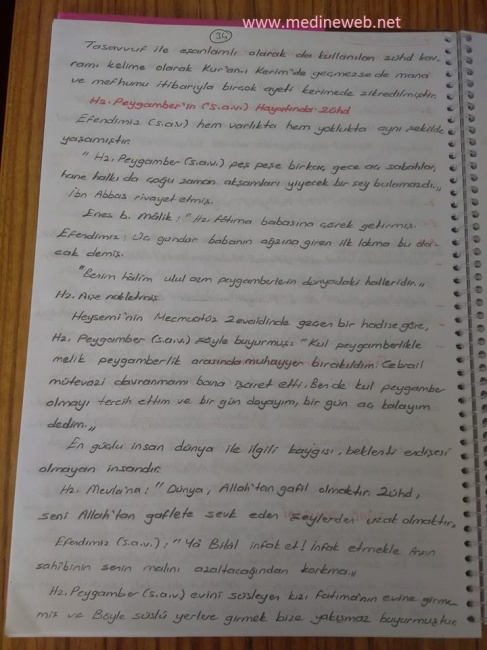 www.medineweb.net
34
Tasavvuf ile eşanlamlı olarak da kullanılan zühd kav-
ramı kelime olarak Kur'an-ı Kerim'de geçmezse de mana
ve mefhumu itibarıyla birçok ayeti kerimede zikredilmiştir.
Hz. Peygamber'in (s.a.v.) Hayatında Zühd
Efendimiz (s.a.v) hem varlıkta hem yoklukta aynı şekilde
yaşamıştır.
"Hz. Peygamber (s.a.v.) peş peşe birkaç gece aç sabahlar,
hane halkı da çoğu zaman akşamları yiyecek bir şey bulamazdı."
İbn Abbas rivayet etmiş.
Enes b. Mâlik: "Hz. Fâtıma babasına çörek getirmiş.
Efendimiz: Üç gündür babanın ağzına giren ilk lokma bu ola-
cak demiş.
"Benim hâlim ulul azm peygamberlerin dünyadaki halleridir."
Hz. Aişe nakletmiş.
Heysemi'nin Mecmaûz Zevaidinde geçen bir hadise göre,
Hz. Peygamber (s.a.v) şöyle buyurmuş: "Kul peygamberlikle
melik peygamberlik arasında muhayyer bırakıldım. Cebrail
mütevazi davranmamı bana işaret etti. Ben de kul peygamber
olmayı tercih ettim ve bir gün doyayım, bir gün aç kalayım
dedim."
En güçlü insan dünya ile ilgili kaygısı, beklenti endişesi
olmayan insandır.
Hz. Mevla'na: "Dünya, Allah'tan gafil olmaktır. Zühd,
seni Allah'tan gaflete sevk eden şeylerden uzak olmaktır."
Efendimiz (s.a.v.): "Yâ Bilâl infak et! İnfak etmekle Arşın
sahibinin senin malını azaltacağından korkma."
Hz. Peygamber (s.a.v) evini süsleyen kızı Fatıma'nın evine girme-
miş ve Böyle süslü yerlere girmek bize yakışmaz buyurmuştur